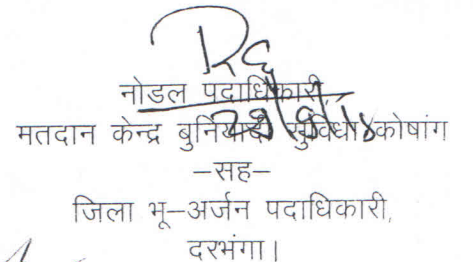 नोडल पदाधिकारी,
मतदान केन्द्र बुनियादी सुविधा कोषांग
–सह–
जिला भू–अर्जन पदाधिकारी,
दरभंगा।